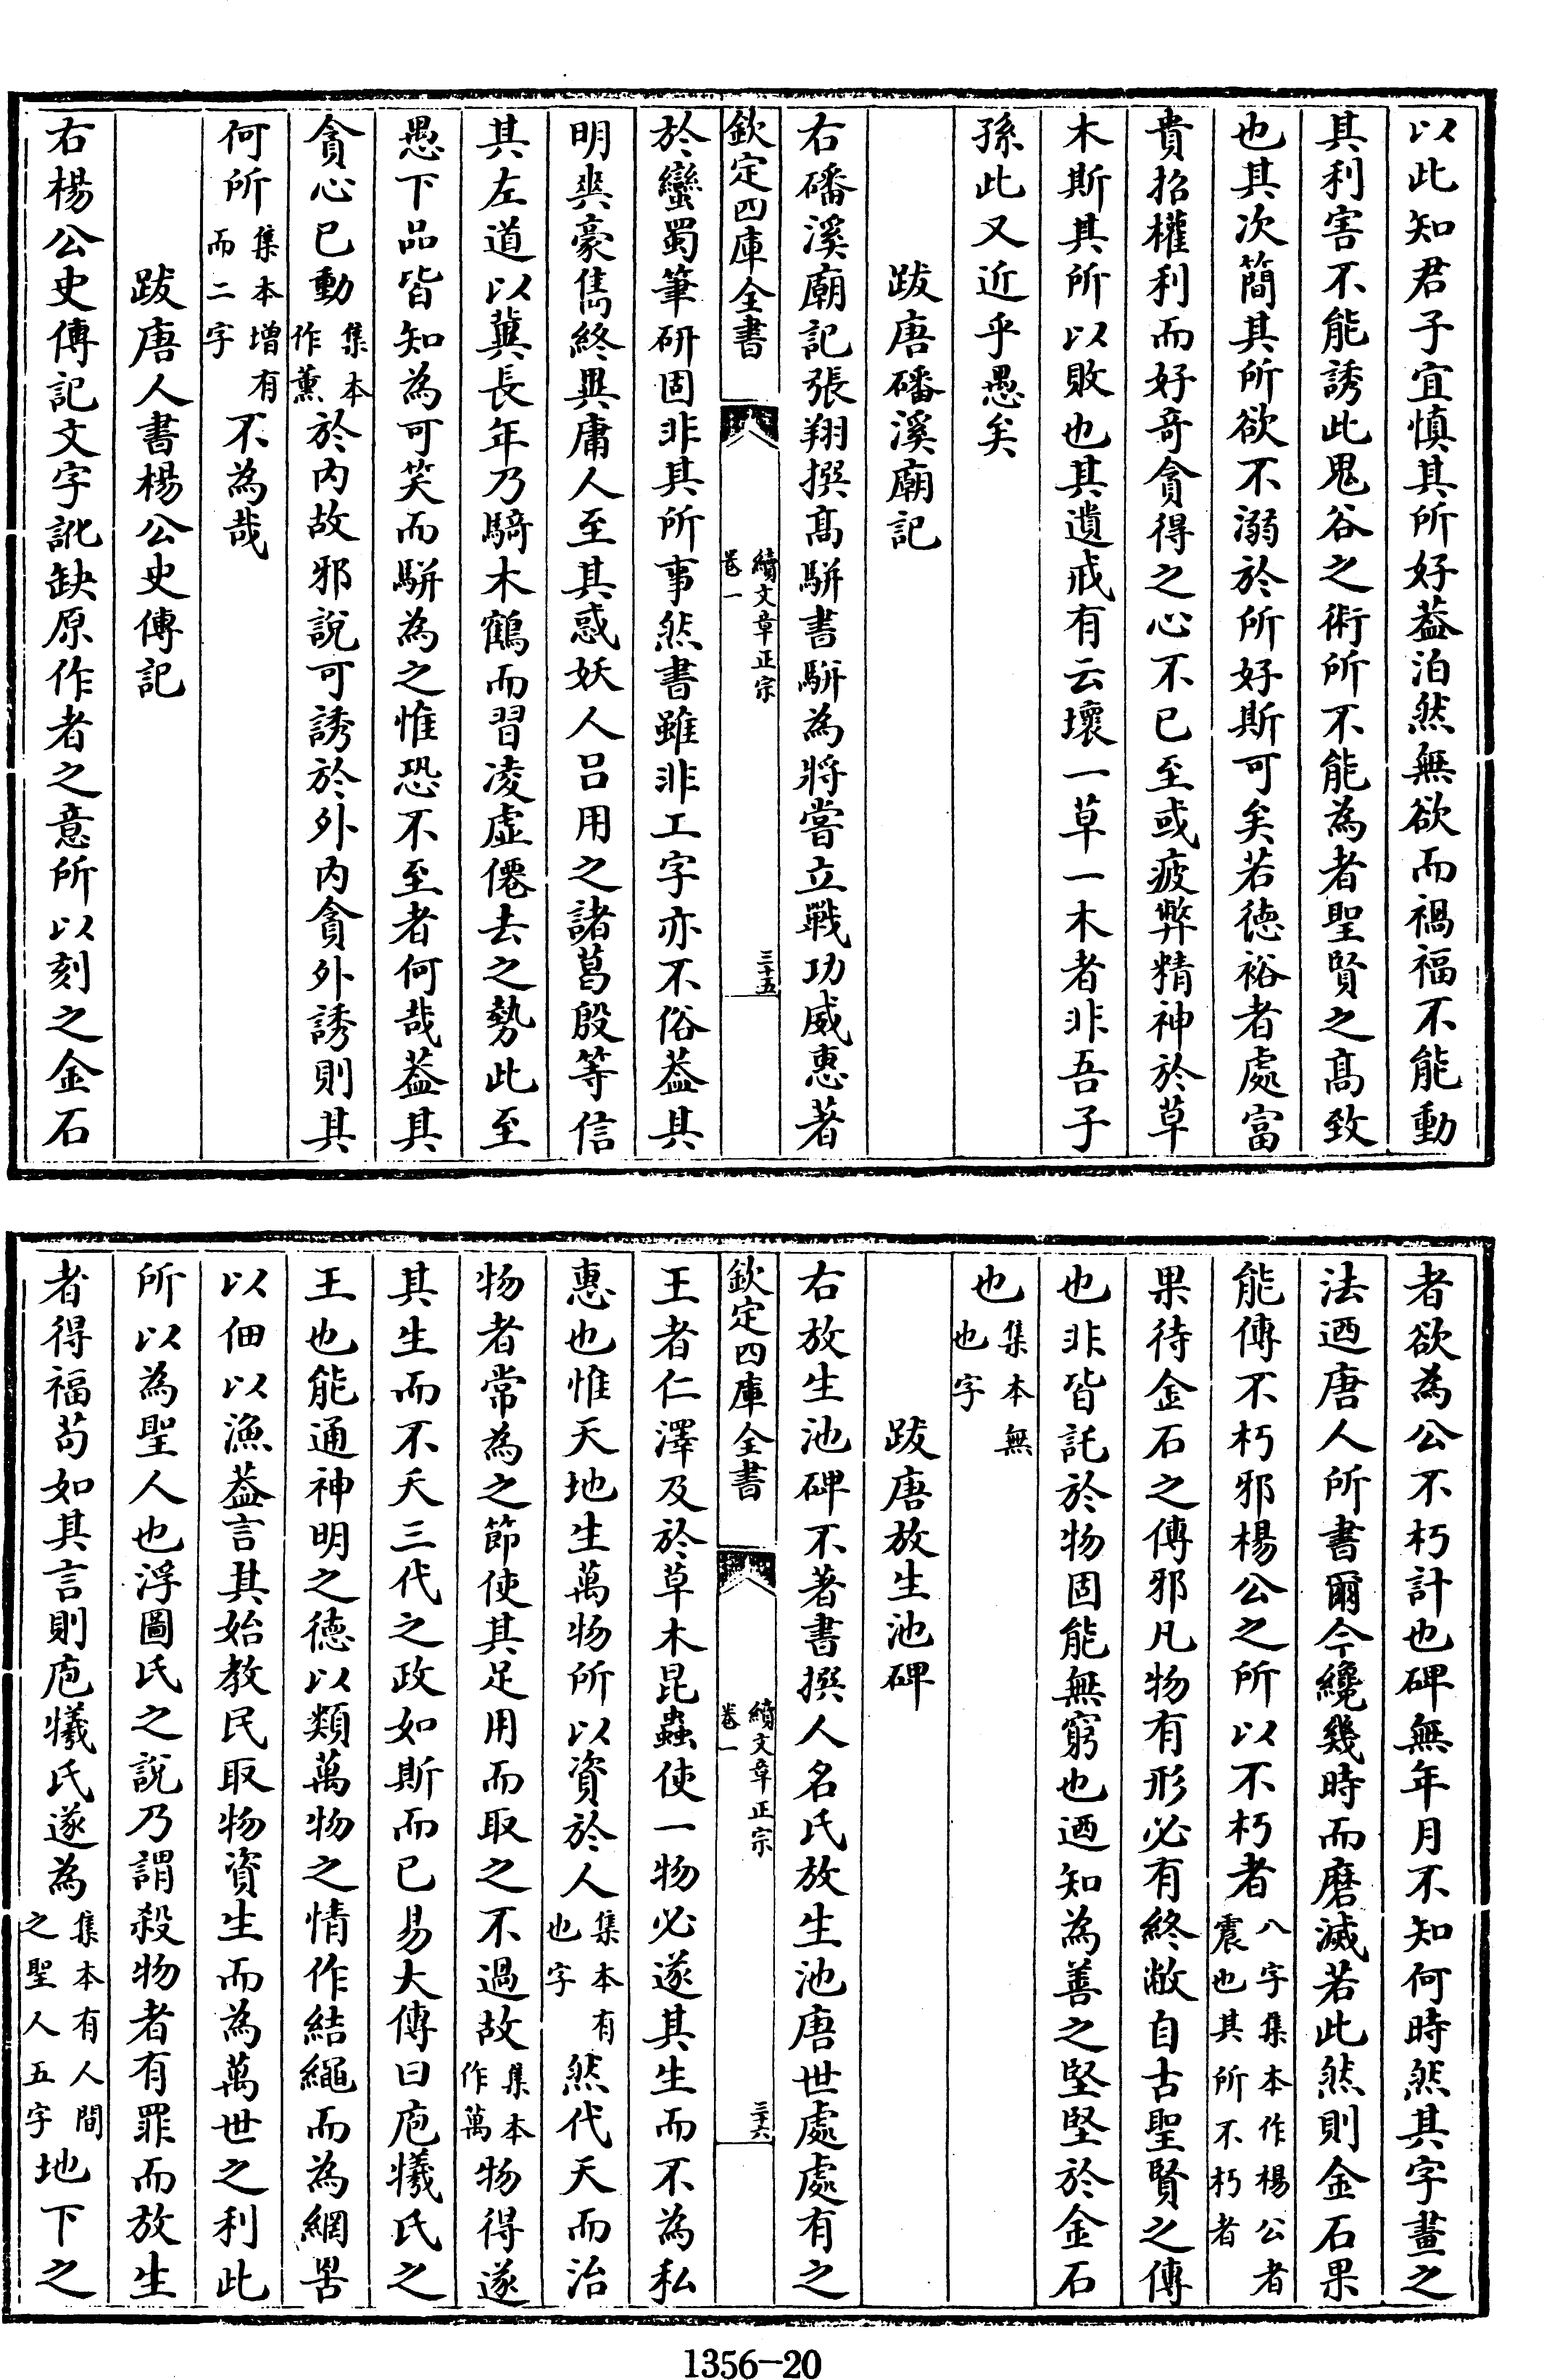 以此知君子宜慎其所好葢泊然無欲而禍福不能動
其利害不能誘此鬼谷之術所不能為者聖賢之髙致
也其次簡其所欲不溺於所好斯可矣若徳裕者處富
貴招權利而好奇貪得之心不已至或疲弊精神於草
木斯其所以敗也其遺戒有云壞一草一木者非吾子
孫此又近乎愚矣
跋唐磻溪廟記
右磻溪廟記張翔撰髙駢書駢為將嘗立戰功威惠著
欽定四庫全書
續文章正宗
卷一
三十五
於蠻蜀筆研固非其所事然書雖非工字亦不俗葢其
明爽豪雋終異庸人至其惑妖人吕用之諸葛殷等信
其左道以冀長年乃騎木鶴而習凌虛僊去之勢此至
愚下品皆知為可笑而駢為之惟恐不至者何哉葢其
貪心已動集本作薫於内故邪說可誘於外内貪外誘則其
何所集本増有而二字不為哉
跋唐人書楊公史傳記
右楊公史傳記文字訛缺原作者之意所以刻之金石
者欲為公不朽計也碑無年月不知何時然其字畫之
法迺唐人所書爾今纔幾時而磨滅若此然則金石果
能傳不朽邪楊公之所以不朽者八字集本作楊公者震也其所不朽者
果待金石之傳邪凡物有形必有終敝自古聖賢之傳
也非皆託於物固能無窮也迺知為善之堅堅於金石
也集本無也字
跋唐放生池碑
右放生池碑不著書撰人名氏放生池唐世處處有之
欽定四庫全書
續文章正宗
卷一
三十六
王者仁澤及於草木昆蟲使一物必遂其生而不為私
惠也惟天地生萬物所以資於人集本有也字然代天而治
物者常為之節使其足用而取之不過故集本作萬物得遂
其生而不夭三代之政如斯而已易大傳曰庖犧氏之
王也能通神明之徳以類萬物之情作結繩而為網罟
以佃以漁葢言其始教民取物資生而為萬世之利此
所以為聖人也浮圖氏之說乃謂殺物者有罪而放生
者得福苟如其言則庖犧氏遂為集本有人間之聖人五字地下之
1356-20